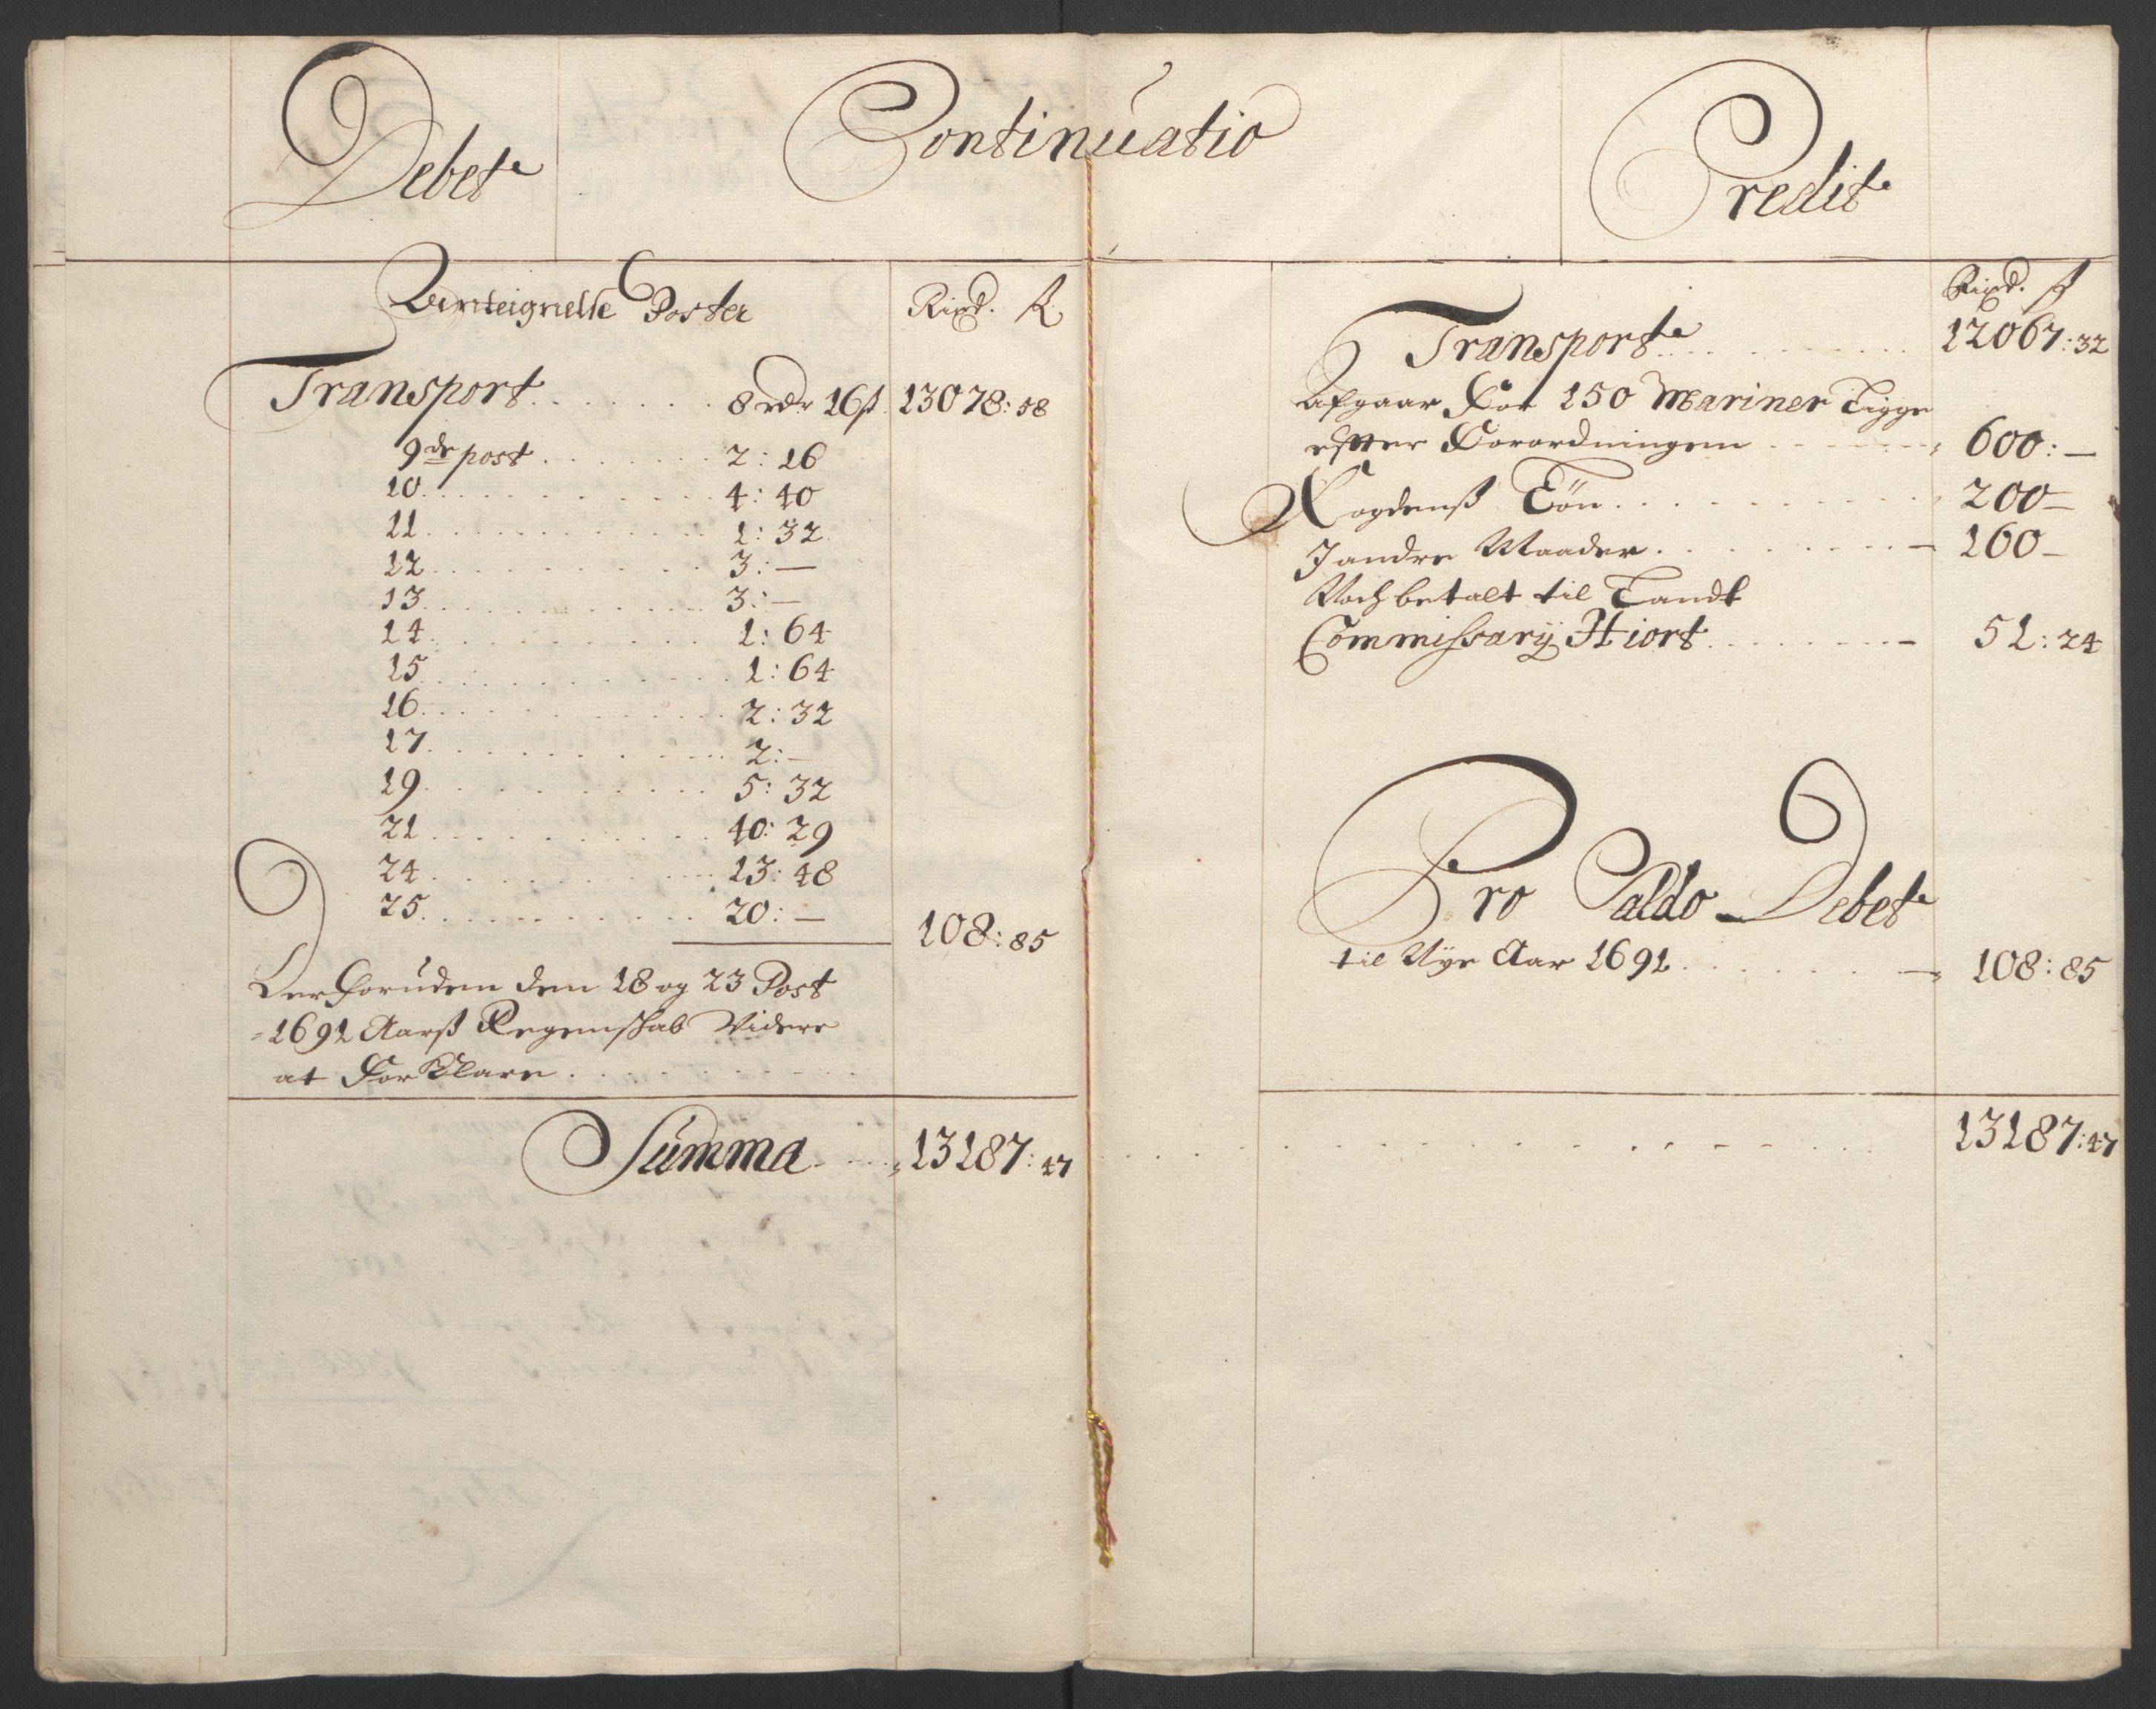 Debet
Continuatio
Credit
Anteignelse Poster Rixd. ß
Transport 8 rdr 16 ß 13078:58
9de post 2:16
10 4:40
11 1:32
12 3:—
13 3:—
14 1:64
15 1:64
16 2:32
17 2:—
19 5:32
21 40:29
24 13:48
25 20:—
108:85
Der foruden dem 18 og 23 Post
1691 Aarß Regenskab Videre
at ForKlare
Summa 13187:47
Rixd. ß
Transport 12067:32
Afgaar For 150 Mariner Ligge
efter Forordningen 600:—
Fogdens Løn 200—
I andre Maader 160—
Noch betalt til Landt
Commissarij Hiort 51:24
Pro Saldo Debet
til Nye Aar 1691 108:85
13187:47